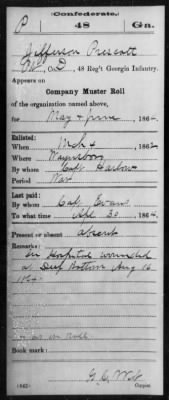 Confederate.
P 48 Ga.
Jefferson Prescott
Co. D, 48 Reg't Georgia Infantry.
Appears on
Company Muster Roll
of the organization named above,
for May & June, 186
Enlisted:
When Mch 4, 1862
Where Waynesboro
By whom Capt Harlow
Period War
Last paid:
By whom Cap Evans
To what time Apl 30, 1864.
Present or absent absent
Remarks: In Hospital wounded
at Deep Bottom Aug 16
1864.
as on roll
Book mark:
Copyist.